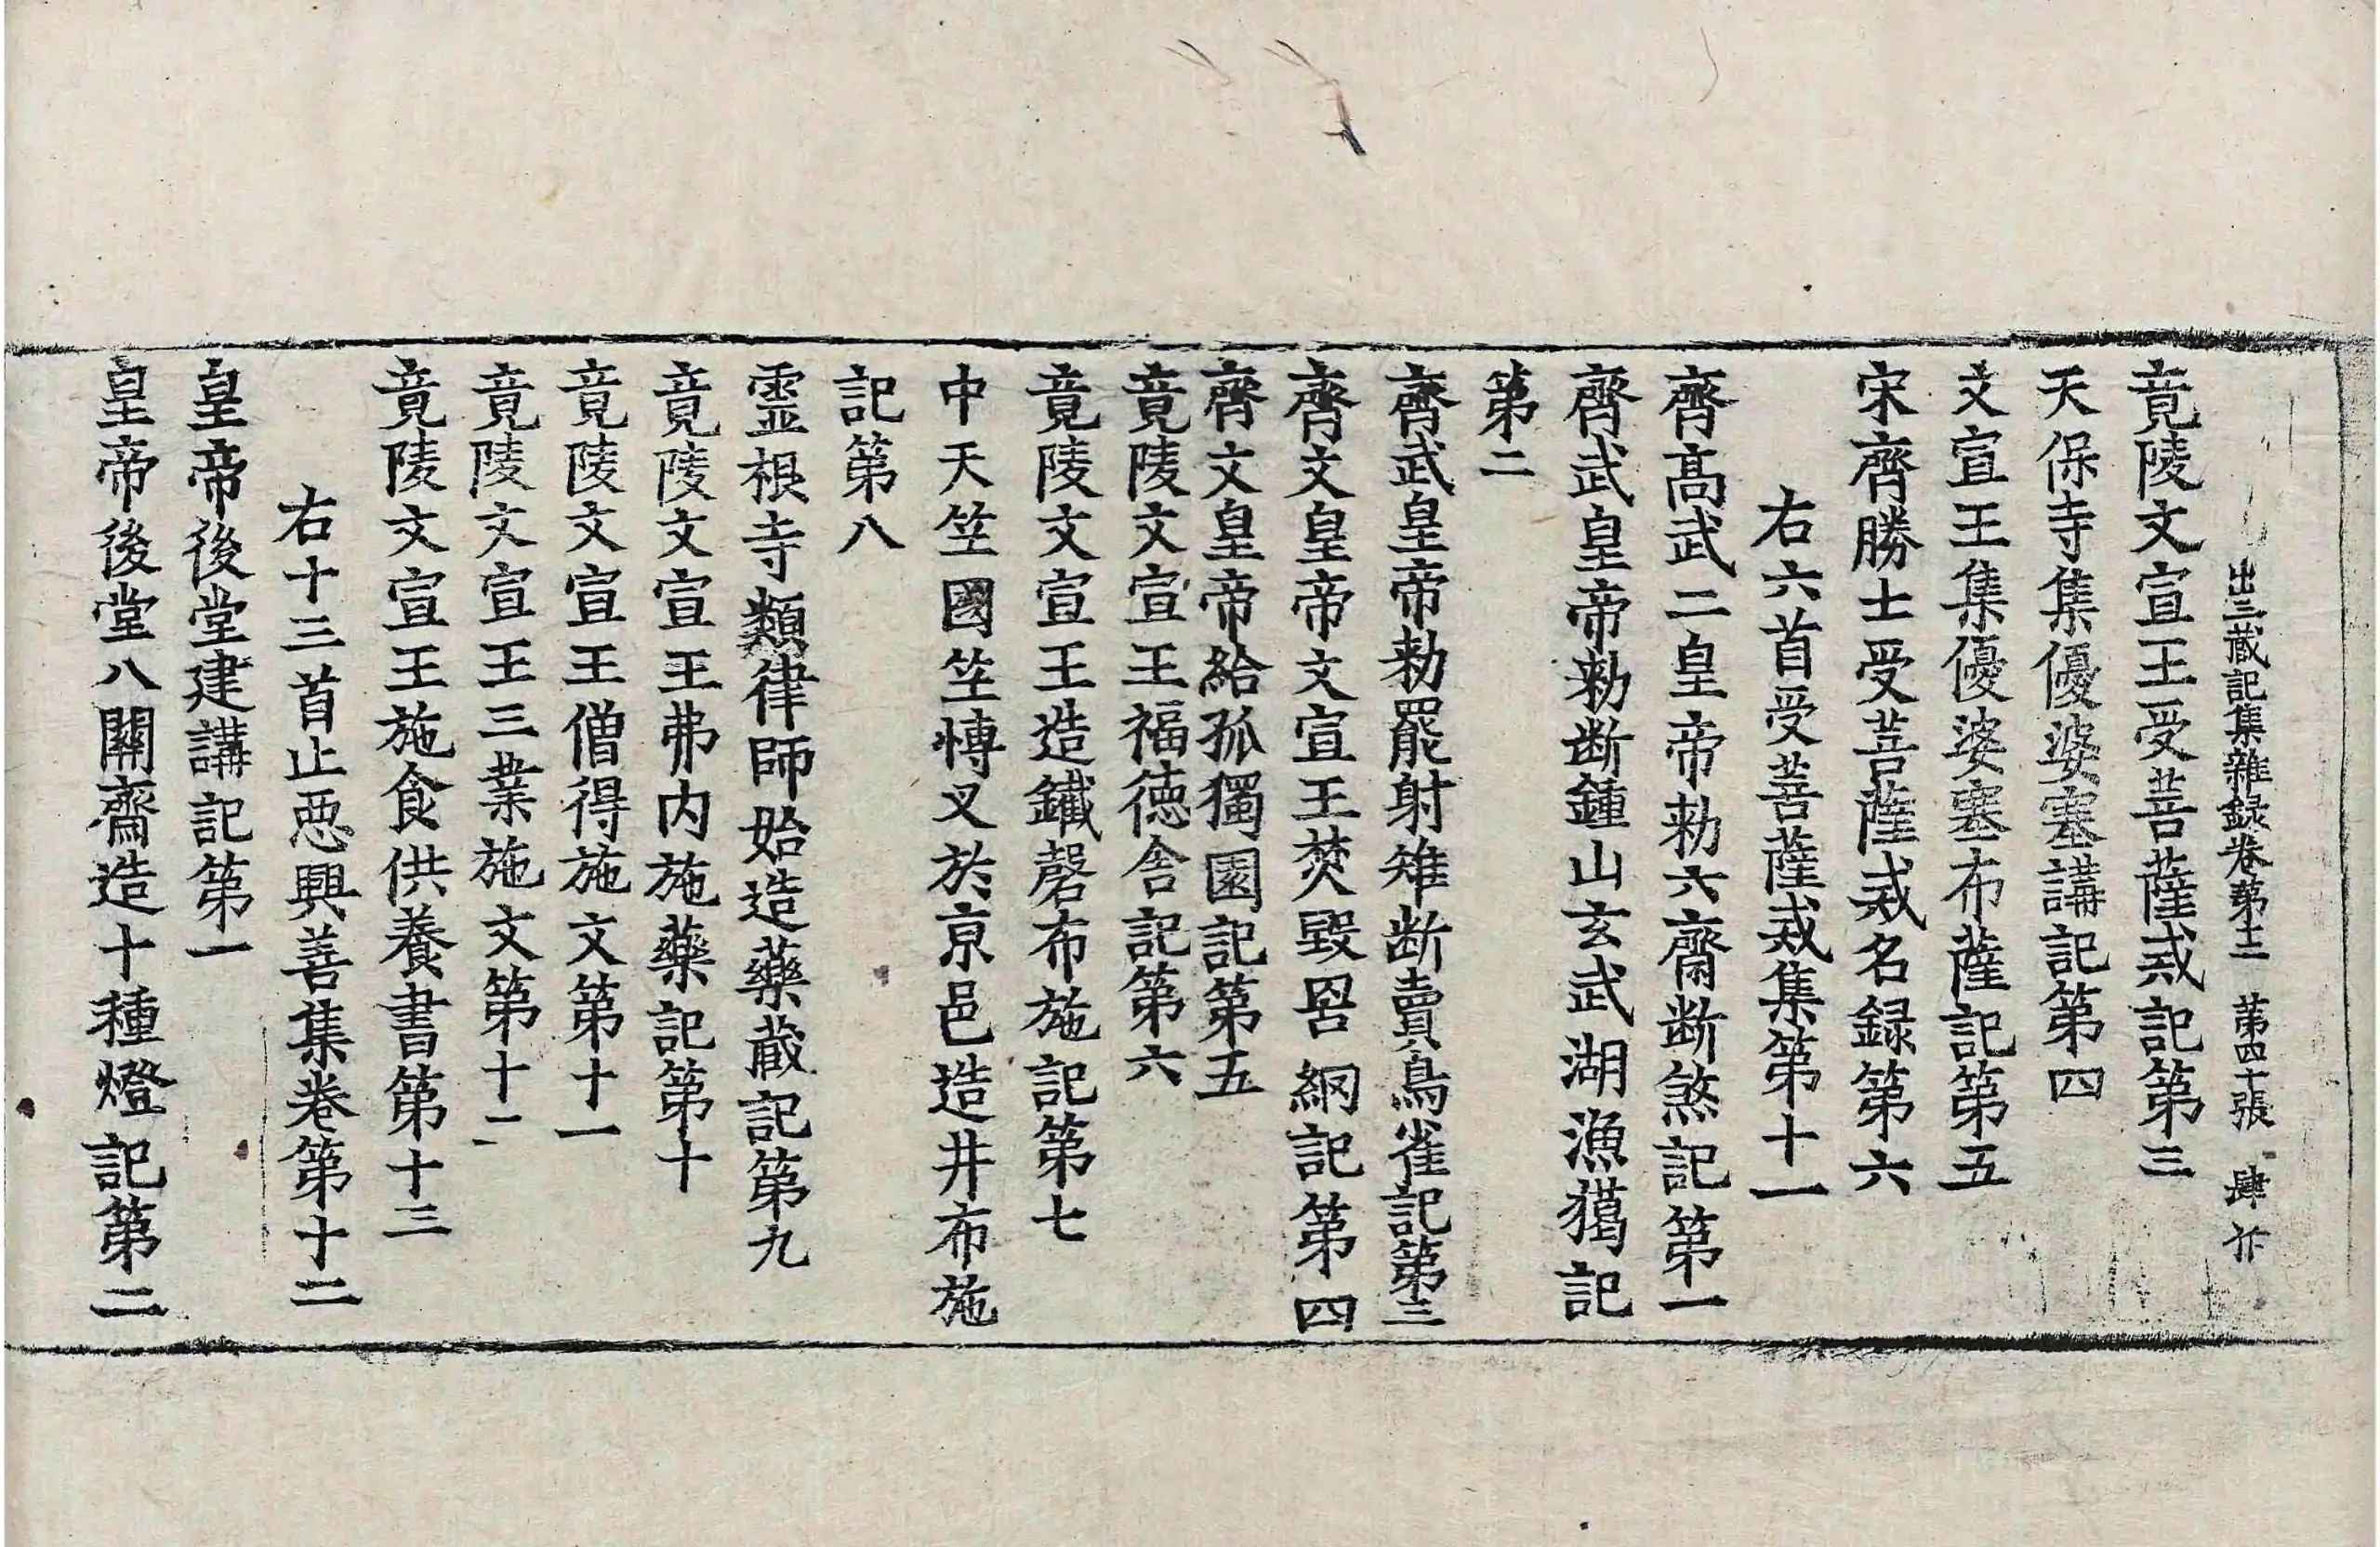 出三藏記集雜録卷第十二　第四十張　肆
竟陵文宣王受菩薩戒記第三
天保寺集優婆塞講記第四
文宣王集優婆塞布薩記第五
宋齊勝士受菩薩戒名録第六
右六首受菩薩戒集第十一
齊高武二皇帝勑六齋断煞記第一
齊武皇帝勑断鍾山玄武湖漁獦記
第二
齊武皇帝勑罷射雉断賣鳥雀記第三
齊文皇帝文宣王焚毀罟網記第四
齊文皇帝給孤獨園記第五
竟陵文宣王福德舎記第六
竟陵文宣王造鐵磬布施記第七
中天竺國竺愽叉於亰邑造井布施
記第八
靈根寺類律師始造藥藏記第九
竟陵文宣王弗内施藥記第十
竟陵文宣王僧得施文第十一
竟陵文宣王三業施文第十二
竟陵文宣王施食供養書第十三
右十三首止惡興善集卷第十二
皇帝後堂建講記第一
皇帝後堂八關齋造十種燈記第二